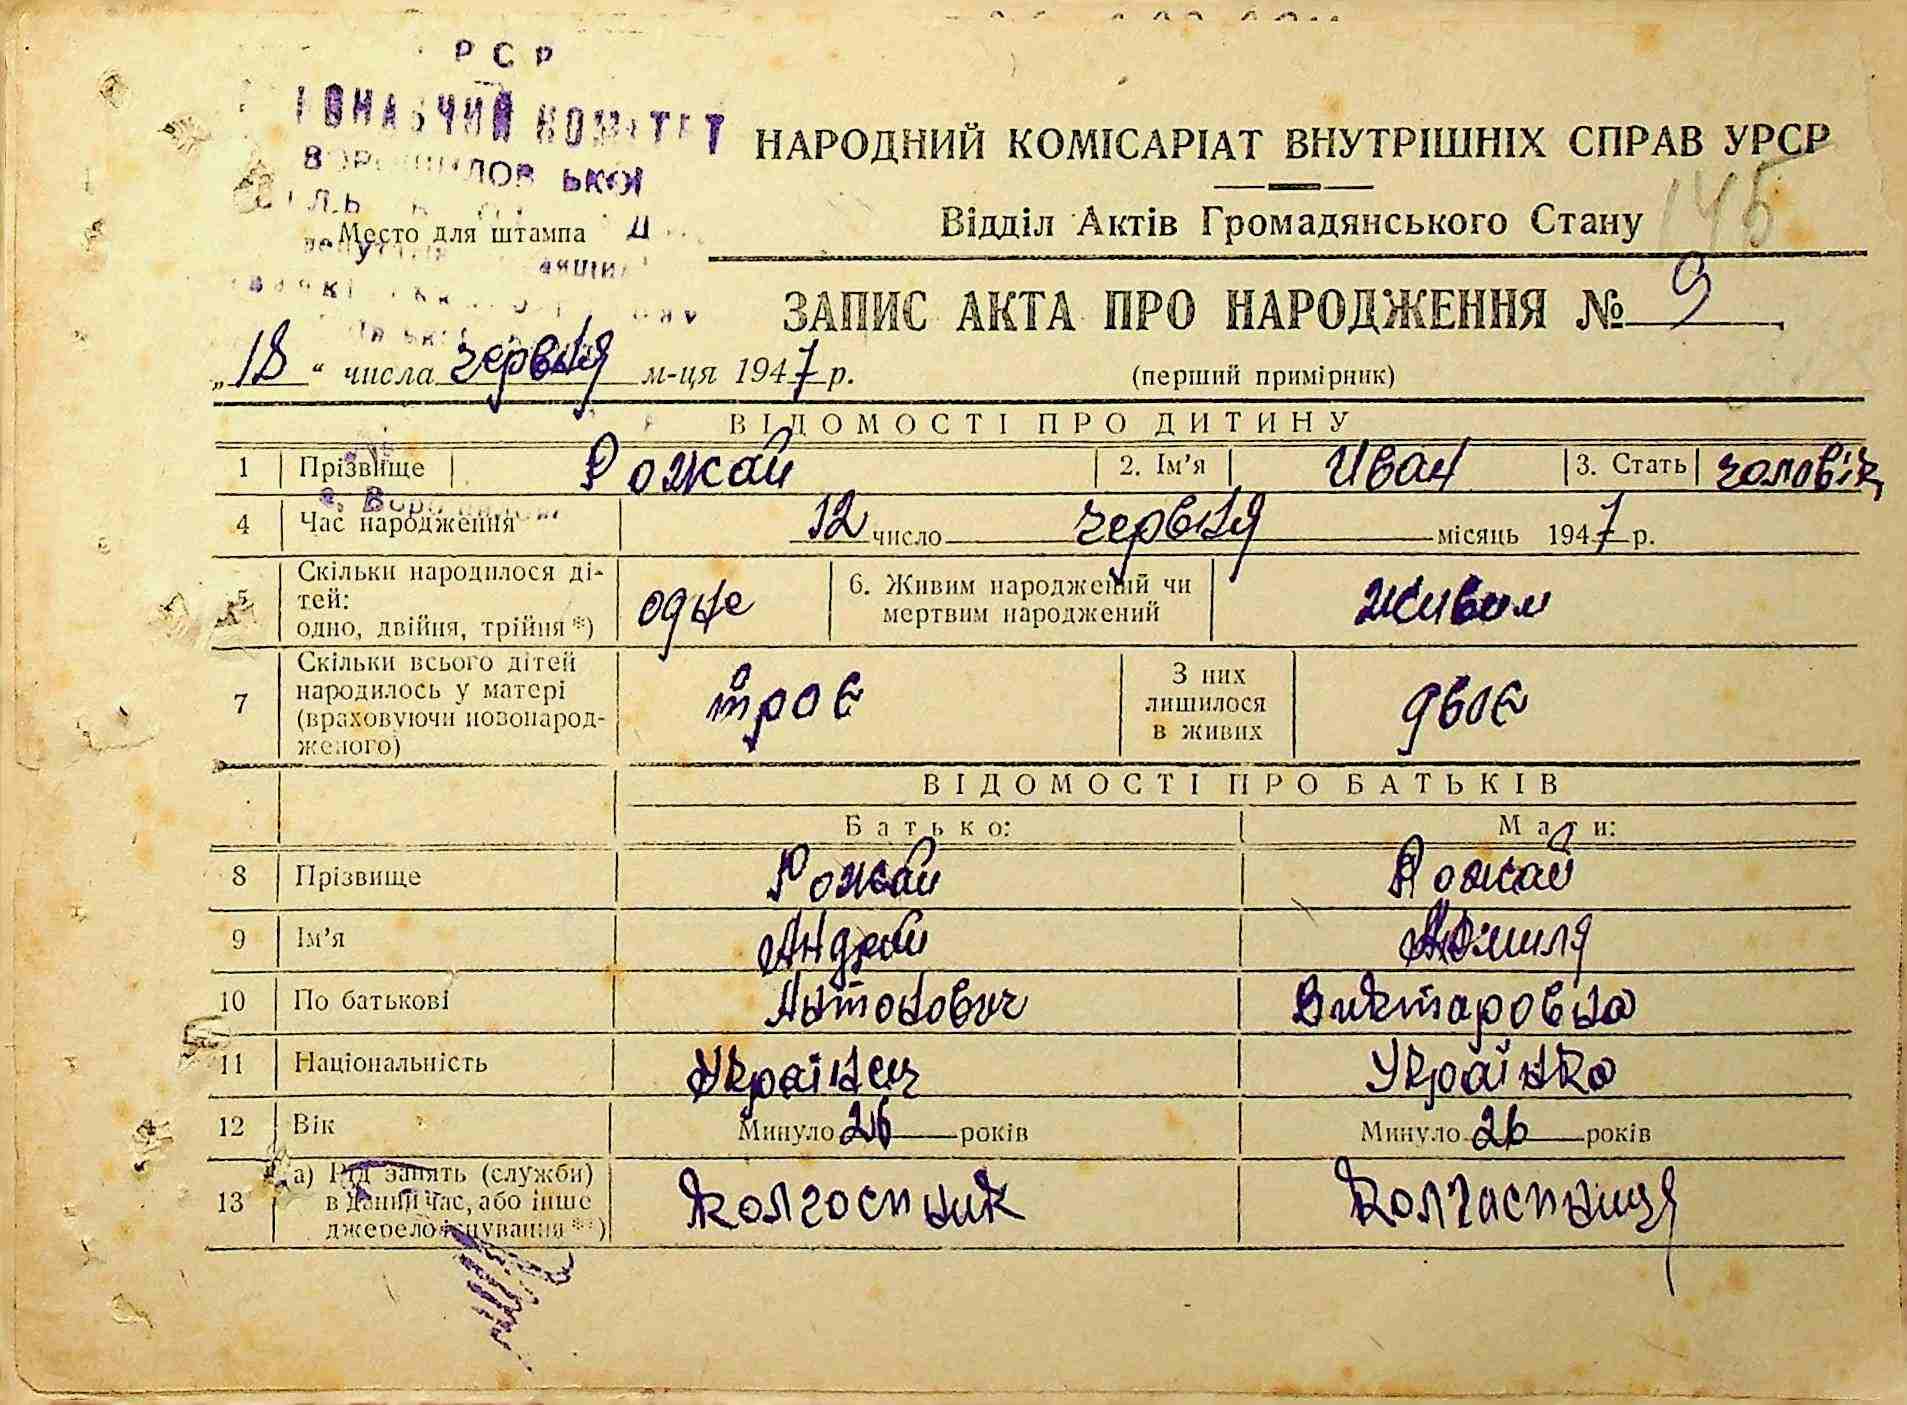 РСР
КОМІТЕТ
НАРОДНИЙ КОМІСАРІАТ ВНУТРІШНІХ СПРАВ УРСР
145
Место для штампа
Відділ Актів Громадянського Стану
ЗАПИС АКТА ПРО НАРОДЖЕННЯ № 9
„18“ числа червня м-ця 1947 р.
(перший примірник)
ВІДОМОСТІ ПРО ДИТИНУ
1 Прізвище Рожай 2. Ім’я Иван 3. Стать чоловіч
4 Час народження 12 число червня місяць 1947 р.
5 Скільки народилося ді-
тей:
одно, двійня, трійня *) одне 6. Живим народжений чи
мертвим народжений Живим
7 Скільки всього дітей
народилось у матері
(враховуючи новонарод-
женого) троє З них
лишилося
в живих двоє
ВІДОМОСТІ ПРО БАТЬКІВ
Батько: Мати:
8 Прізвище Рожай Рожай
9 Ім’я Андрей
10 По батькові Антонович Виктаровна
11 Національність Українец Українка
12 Вік Минуло 26 років Минуло 26 років
13 а) Рід занять (служби)
в даний час, або інше
джерело існування **) Колгоспник Колгаспниця